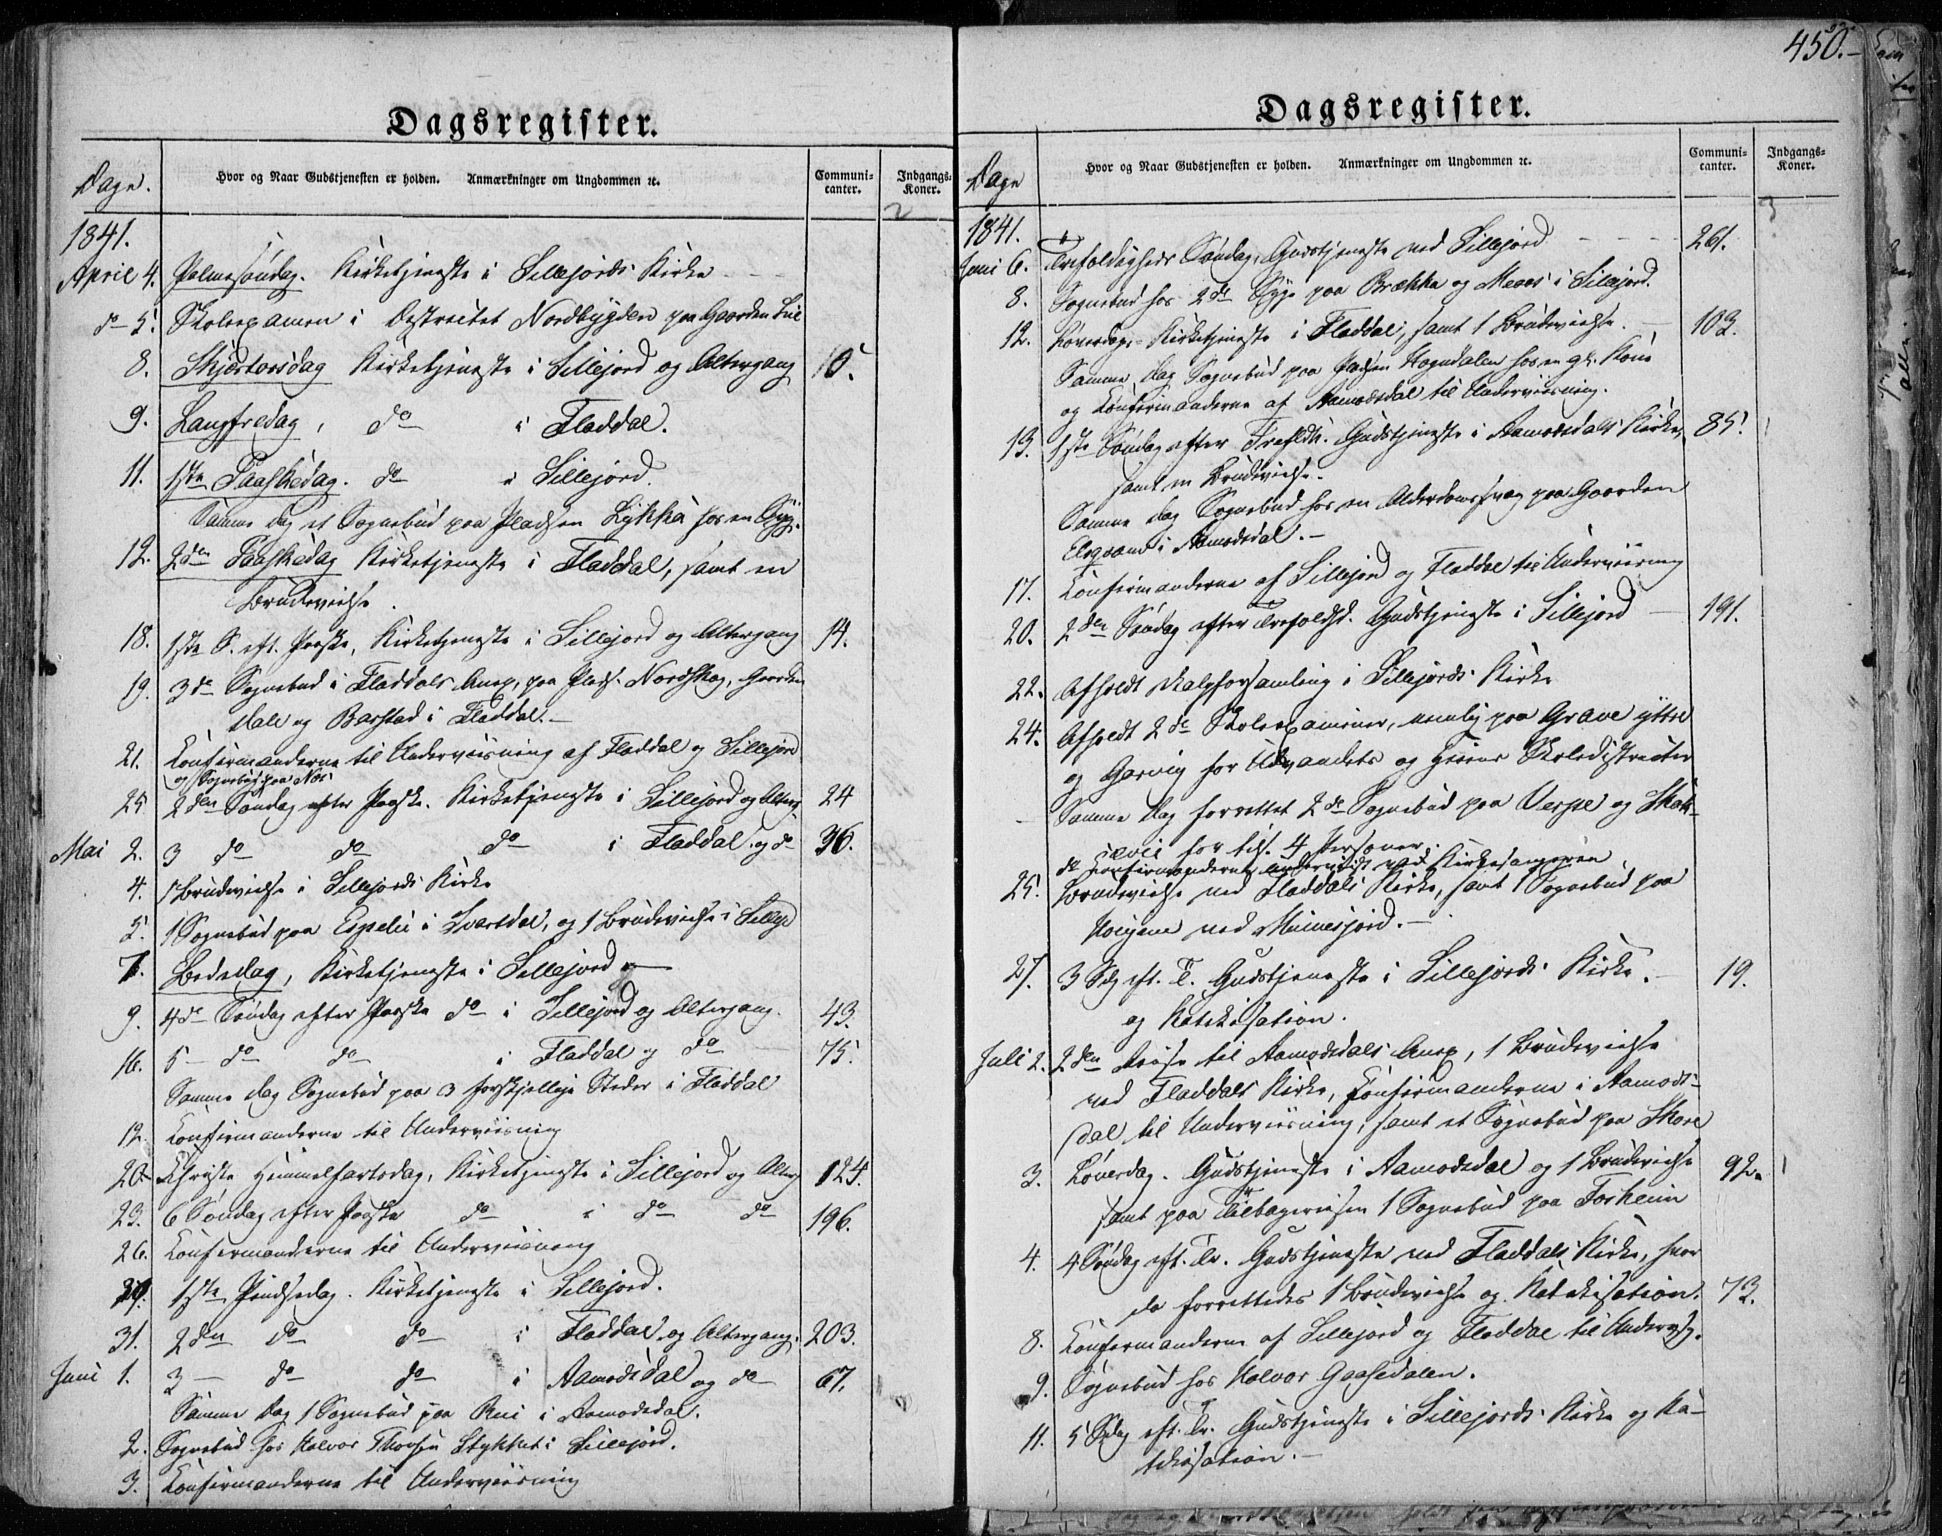 Dagsregister.
Dage.
Hvor og Naar Gudstjenesten er holden. Anmærkninger om Ungdommen ꝛc.
Communi-
canter.
Indgangs-
Koner.
2
1841.
April 4. Palmesøndag. Kirketjeneste i Sillejords Kirke
do 5. Skoleexamen i Districtet Nordbygden paa Gaarden Lie
8. Skjærtorsdag Kirketjeneste i Sillejord og Altergang 10.
9. Langfredag, do i Fladdal.
11. 1ste Paaskedag. do i Sillejord.
Samme Dag et Sognebud paa Pladsen Lykkja hos en Syg.
12. 2den Paaskedag Kirketjeneste i Fladdal, samt en
Brudevielse.
18. 1ste S. eft. Paaske, Kirketjeneste i Sillejord og Altergang 14.
19. 3de Sognebud i Fladdals Anex, paa Plads. Nordskog, Gaarden
Dale og Barstad i Fladdal.
21. Konfirmanderne til Underviisning af Fladdal og Sillejord
og Sognebud paa Næs
25 2den Søndag efter Paaske. Kirketjeneste i Sillejord og Alterg. 24
Mai 2. 3 do do do i Fladdal og do 36.
4. 1 Brudevielse i Sillejords Kirke
5. 1 Sognebud paa Espelie i Svartdal, og 1 Brudevielse i Sillejd
7. Bededag, Kirketjeneste i Sillejord
9. 4de Søndag efter Paaske do i Sillejord og Altergang. 43.
16. 5 do do i Fladdal og do 75.
Samme Dag Sognebud paa 3 forskjellige Steder i Fladdal
12. Konfirmanderne til Underviisning
20. Christi Himmelfartsdag, Kirketjeneste i Sillejord og Alterg 124.
23. 6 Søndag efter Paaske do i do do 196.
26. Konfirmanderne til Underviisning
30. 1ste Pindsedag. Kirketjeneste i Sillejord.
31. 2den do do i Fladdal og Altergang. 203.
Juni 1. 3 do do i Aamodsdal og do 67.
Samme Dag 1 Sognebud paa Rui i Aamodsdal.
2. Sognebud hos Halvor Thorsen Stykket i Sillejord.
3. Konfirmanderne til Underviisning
450.
Dagsregister.
Dage
Hvor og Naar Gudstjenesten er holden. Anmærkninger om Ungdommen ꝛc.
Communi-
canter.
Indgangs-
Koner.
3
1841.
Juni 6. Trefoldigheds Søndag, Gudstjeneste ved Sillejord 261.
8. Sognebud hos 2de Syge paa Brækka og Meaas i Sillejord.
12. Løverdag, Kirketjeneste i Fladdal, samt 1 Brudevielse. 103.
Samme Dag Sognebud paa Pladsen Hogndalen hos en gl. Kone
og Konfirmanderne af Aamodsdal til Underviisning.
13. 1ste Søndag efter Trefldh. Gudstjeneste i Aamodsdals Kirke, 85.
samt en Brudevielse.
Samme Dag Sognebud hos en Alderdomssvag paa Gaarden
i Aamodsdal.
17. Konfirmanderne af Sillejord og Fladdal til Underviisning
20. 2den Søndag efter Trefoldgh. Gudstjeneste i Sillejord 191.
22. Afholdt Valgforsamling i Sillejords Kirke
24. Afholdt 2de Skoleexaminer, nemlig paa Grave yttre
og Garvig for Udvandets og Skoledistricter
Samme Dag forrettet 2de Sognebud paa Verspe og
for tils. 4 Personer.
do Konfirmanderne underviist ved Kirkesangeren
25. Brudevielse ved Fladdals Kirke, samt 1 Sognebud paa
Haugene ved
27. 3 Sdg eft. T. Gudstjeneste i Sillejords Kirke. 19.
og Katekisation.
Juli 2. 2den Reise til Aamodsdals Anex, 1 Brudevielse
ved Fladdals Kirke, Konfirmanderne i Aamods-
dal til Underviisning, samt et Sognebud paa Skore
3. Løverdag. Gudstjeneste i Aamodsdal og 1 Brudevielse 92.
samt paa Tilbagereisen 1 Sognebud paa Forheim
4. 4 Søndag eft. Tr. Gudstjeneste ved Fladdals Kirke, hvor
da forrettedes 1 Brudevielse og Katekisation. 73.
8. Konfirmanderne af Sillejord og Fladdal til Undervsg.
9. Sognebud hos Halvor Gaasedalen.
11. 5 Sdg eft. Tr. Gudstjeneste i Sillejords Kirke og Ka-
tekisation.